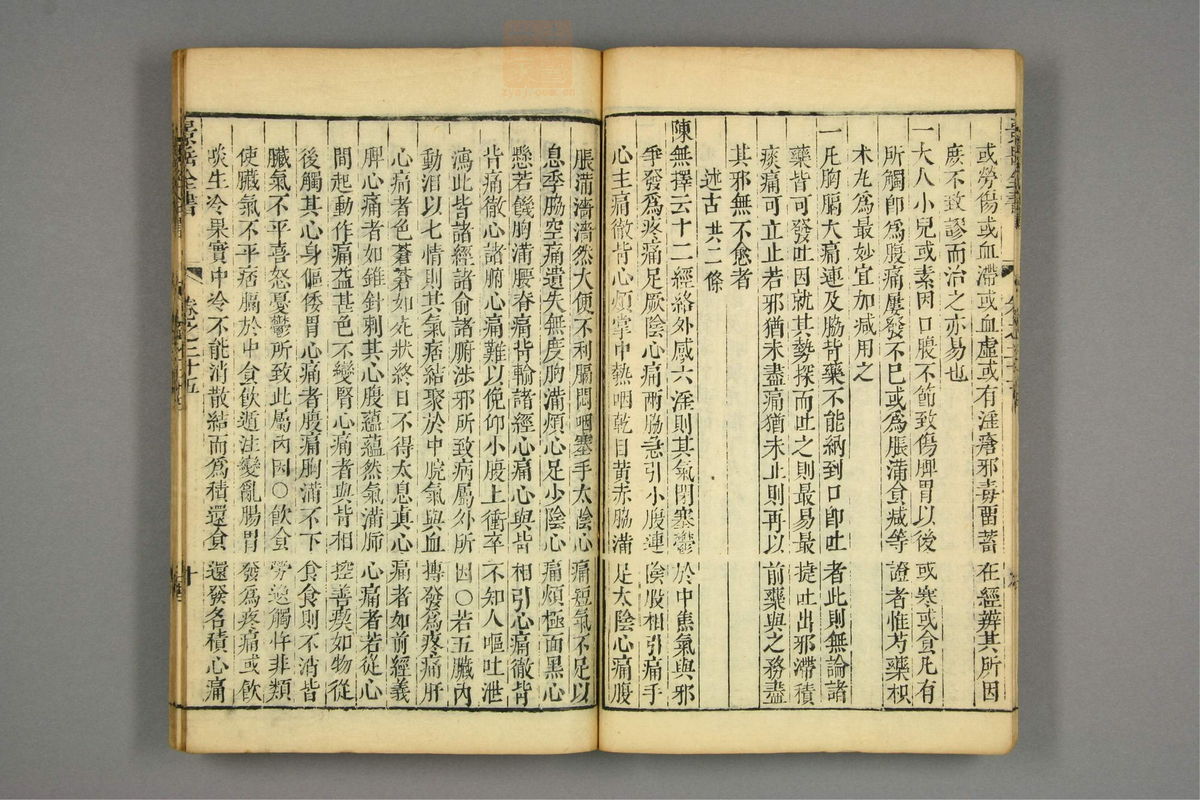 或勞傷或血滯或血虛或有淫瘡邪毒畱蓄在經辨其所因
庶不致謬而治之亦易也
一大人小兒或素因口腹不節致傷脾胃以後或寒或食凡有
所觸即爲腹痛屢發不已或爲脹滿食減等證者惟芍藥枳
术丸爲最妙宜加減用之
一凡胸膈大痛連及脇背藥不能納到口卽吐者此則無論諸
藥皆可發吐因就其勢探而吐之則最易最捷吐出邪滯積
痰痛可立止若邪猶未盡痛猶未止則再以前藥與之務盡
其邪無不愈者
述古 共二條
陳無擇云十二經絡外感六淫則其氣閉塞鬱於中焦氣與邪
爭發爲疼痛足厥陰心痛兩脇急引小腹連陰股相引痛手
心主痛徹背心煩掌中熱咽乾目黃赤脇滿足太陰心痛腹
脹滿濇濇然大便不利膈悶咽塞手太陰心痛短氣不足以
息季脇空痛遺失無度胸滿煩心足少陰心痛煩極面黑心
懸若饑胸滿腰脊痛背輸諸經心痛心與背相引心痛徹背
背痛徹心諸腑心痛難以俛仰小腹上衝卒不知人嘔吐泄
瀉此皆諸經諸俞諸腑涉邪所致病屬外所因○若五臟內
動汨以七情則其氣痞結聚於中脘氣與血搏發爲疼痛肝
心痛者色蒼蒼如死狀終日不得太息真心痛者如前經義
脾心痛者如錐針刺其心腹蘊蘊然氣滿肺心痛者若從心
間起動作痛益甚色不變腎心痛者與背相控善瘈如物從
後觸其心身傴僂胃心痛者腹痛胸滿不下食食則不消皆
臟氣不平喜怒憂鬱所致此屬內因○飲食勞逸觸忤非類
使臟氣不平痞膈於中食飲遁注變亂腸胃發爲疼痛或飲
啖生冷果實中冷不能消散結而爲積還食還發名積心痛
景岳全書
卷之二十五
十